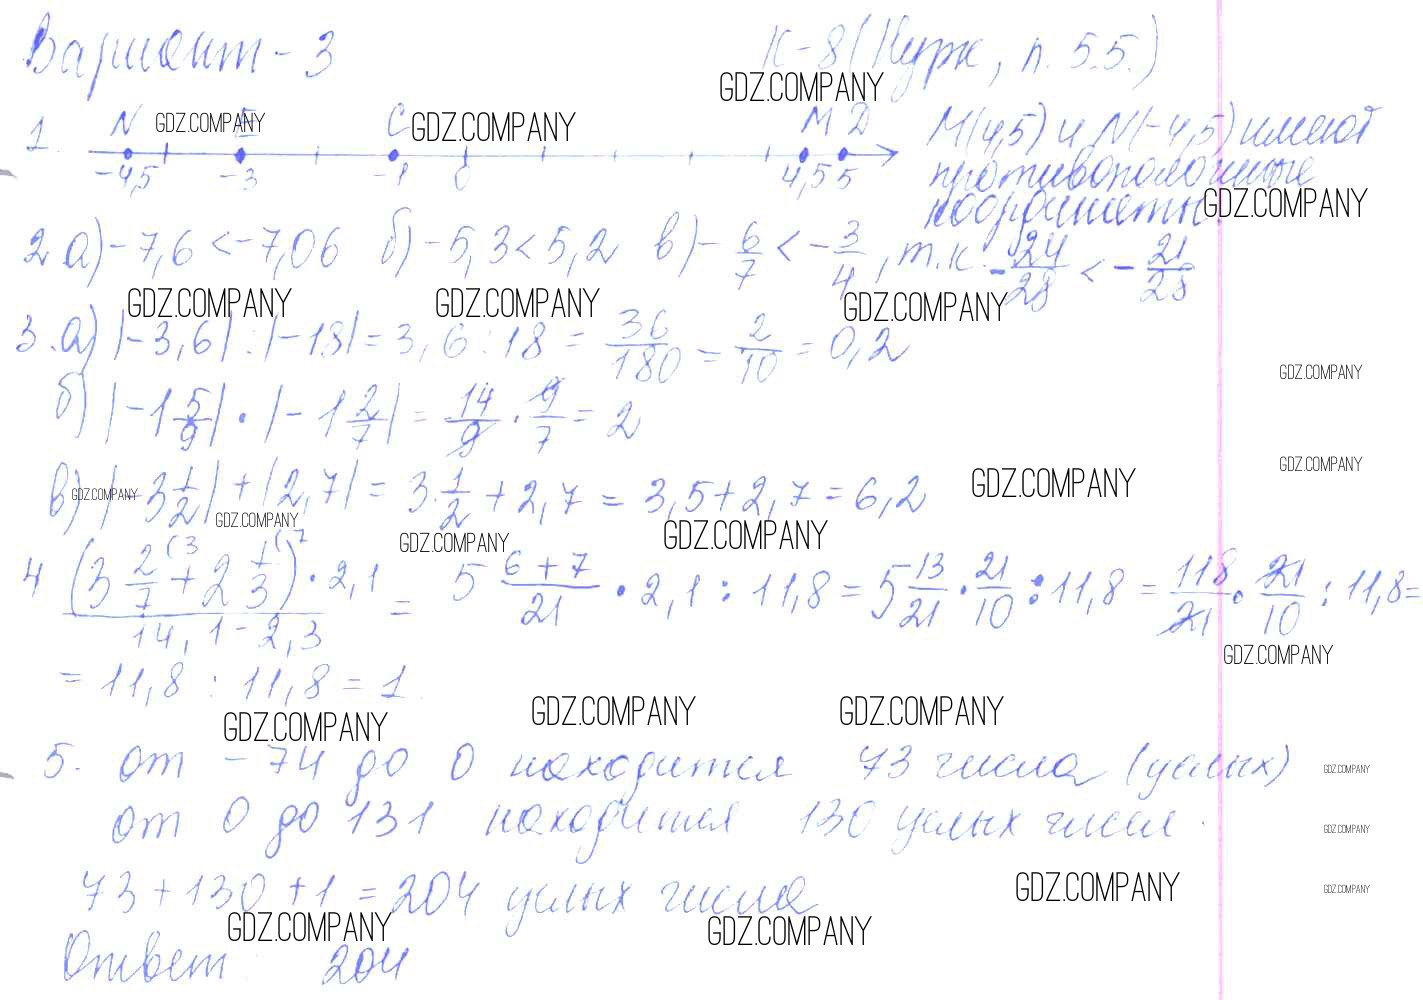 Вариант - 3
К-8 (Нурк, п. 5.5.)
GDZ.COMPANY
1. N E C M D
GDZ.COMPANY GDZ.COMPANY
-4,5 -3 -1 0 4,5 5
M(4,5) и N(-4,5) имеют
противоположные
координаты.
GDZ.COMPANY
2 а) -7,6 < -7,06 б) -5,3 < 5,2 в) - 6/7 < - 3/4, т.к. - 24/28 < - 21/28
GDZ.COMPANY GDZ.COMPANY GDZ.COMPANY
3. а) |-3,6| : |-18| = 3,6 : 18 = 36/180 = 2/10 = 0,2
GDZ.COMPANY
б) |-1 5/9| · |-1 2/7| = 14/9 · 9/7 = 2
GDZ.COMPANY
в) |-3 1/2| + |2,7| = 3 1/2 + 2,7 = 3,5 + 2,7 = 6,2
GDZ.COMPANY GDZ.COMPANY
GDZ.COMPANY GDZ.COMPANY GDZ.COMPANY
4 (3 2/7 (3 + 2 1/3 (7) · 2,1 / 14,1 - 2,3 = 5 6+7/21 · 2,1 : 11,8 = 5 13/21 · 21/10 : 11,8 = 118/21 · 21/10 : 11,8 =
GDZ.COMPANY
= 11,8 : 11,8 = 1
GDZ.COMPANY GDZ.COMPANY GDZ.COMPANY
5. от -74 до 0 находится 73 числа (целых)
GDZ.COMPANY
от 0 до 131 находится 130 целых чисел.
GDZ.COMPANY
73 + 130 + 1 = 204 целых числа
GDZ.COMPANY GDZ.COMPANY
GDZ.COMPANY GDZ.COMPANY
Ответ: 204